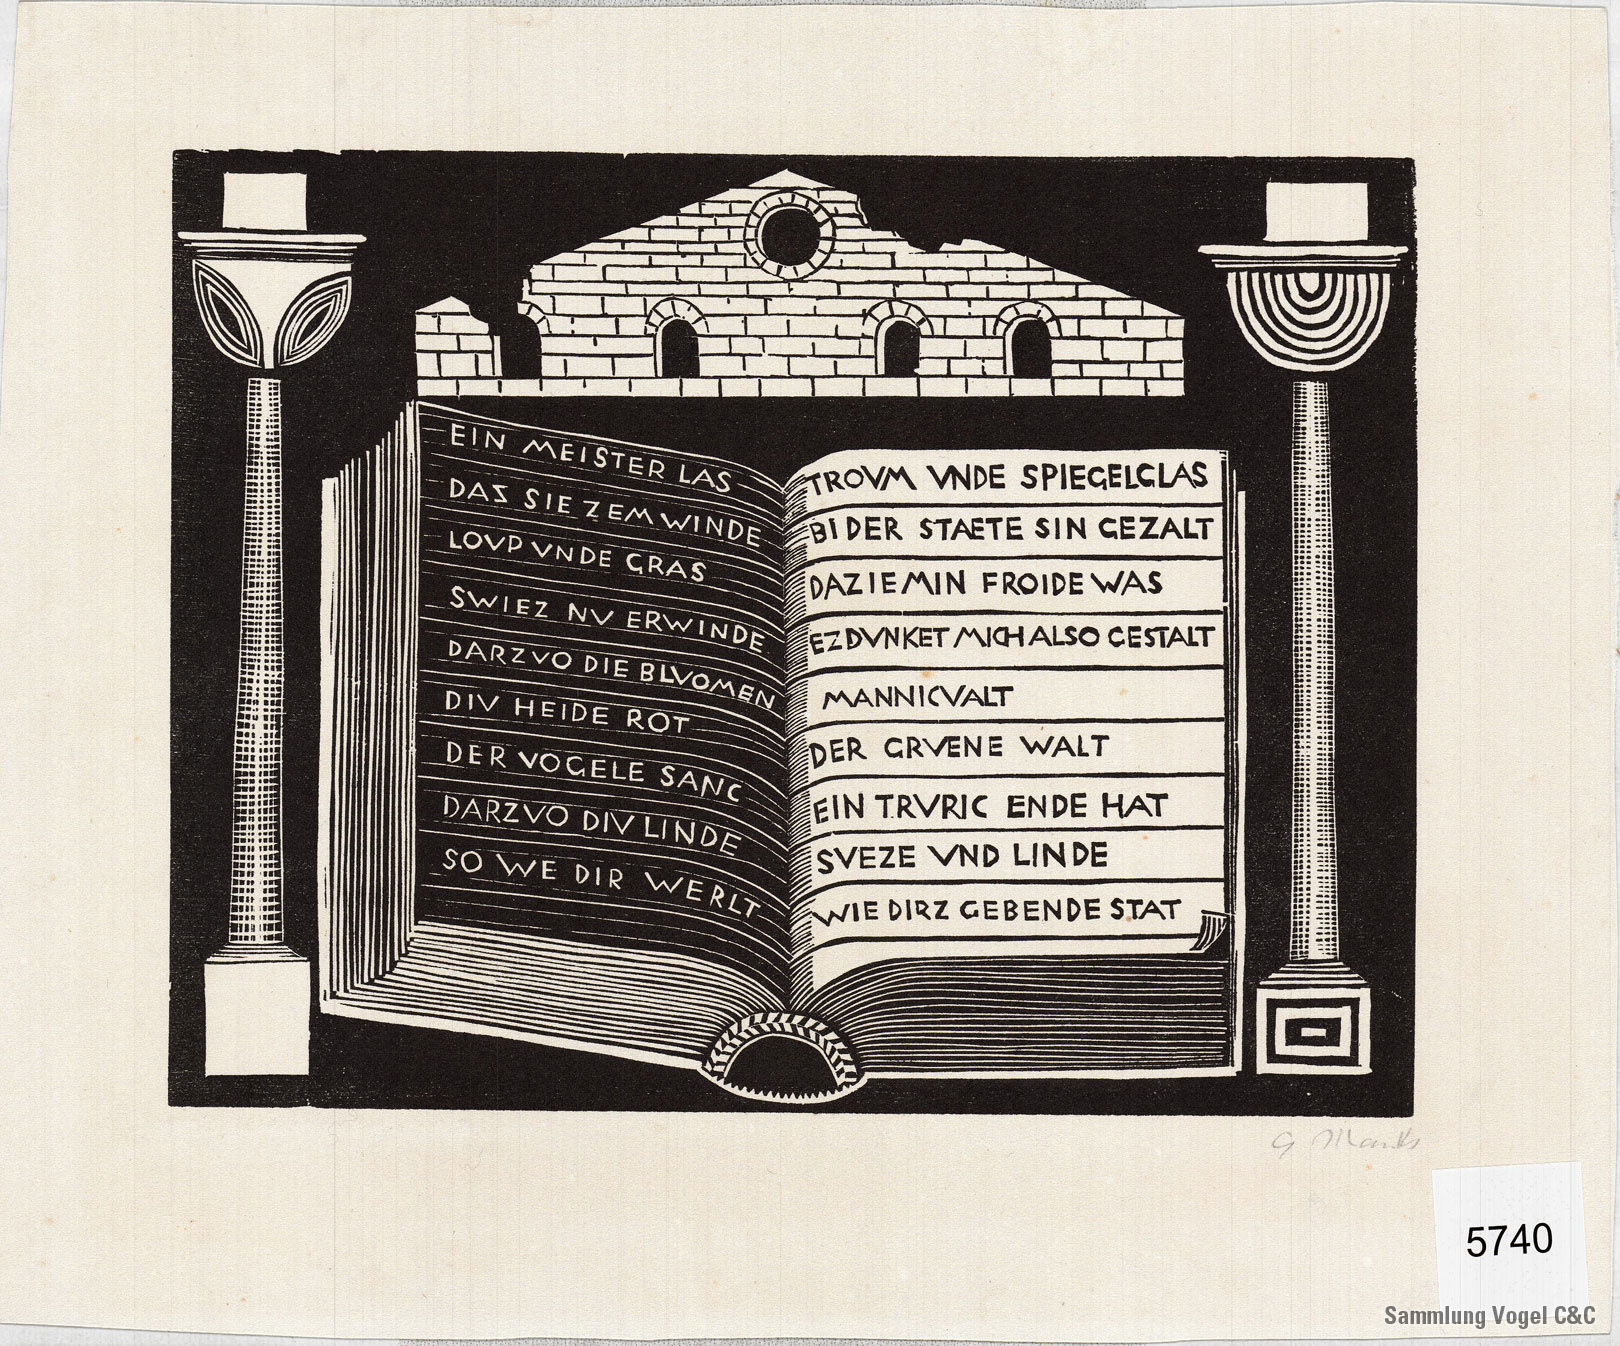 EIN MEISTER LAS
DAZ SIE ZEM WINDE
LOVP VNDE GRAS
SWIEZ NV ERWINDE
DARZVO DIE BLVOMEN
DIV HEIDE ROT
DER VOGELE SANC
DARZVO DIV LINDE
SO WE DIR WERLT
TROVM VNDE SPIEGELGLAS
BI DER STAETE SIN GEZALT
DAZ IE MIN FROIDE WAS
EZ DVNKET MICH ALSO GESTALT
MANNICVALT
DER GRVENE WALT
EIN TRVRIC ENDE HAT
SVEZE VND LINDE
WIE DIRZ GEBENDE STAT
G Marcks
5740
Sammlung Vogel C&C